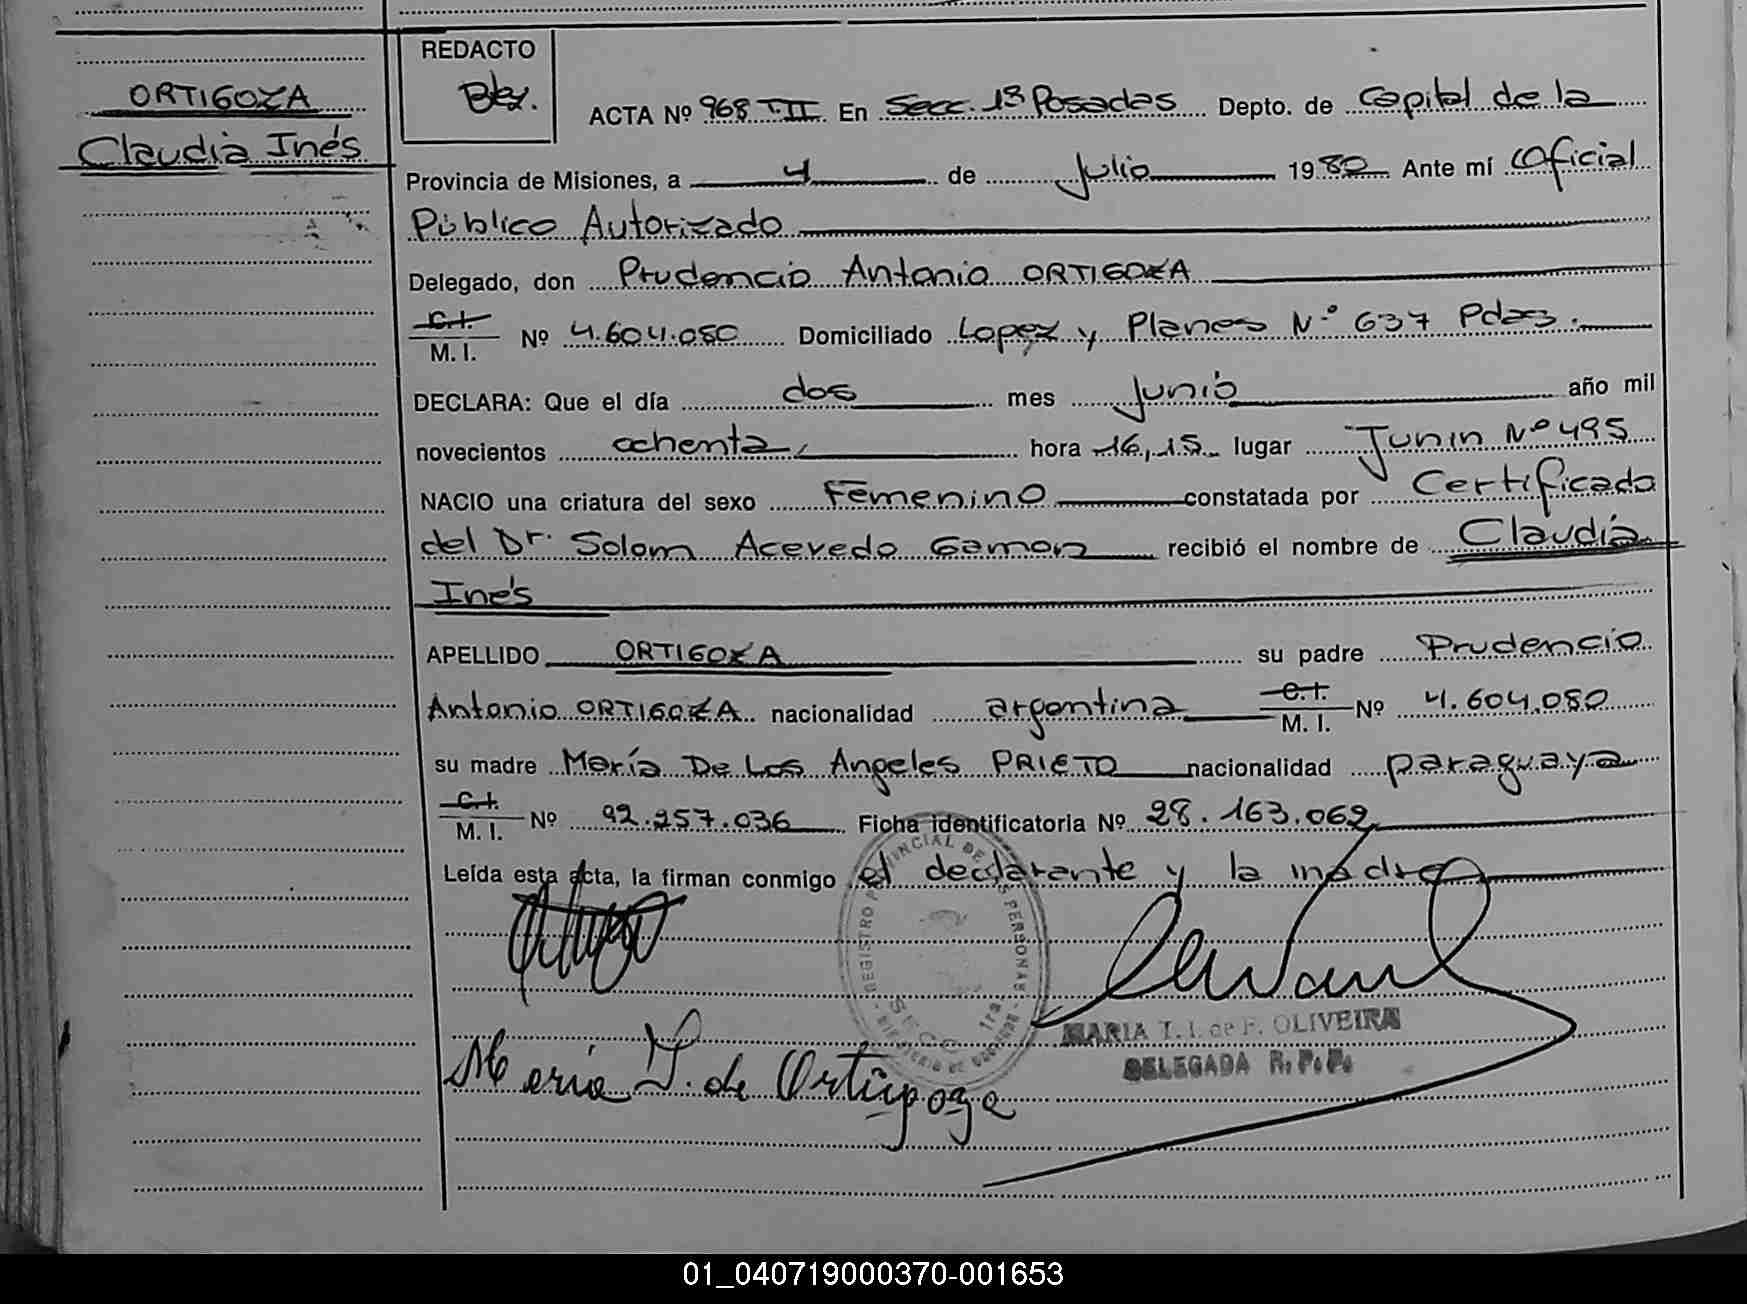 ORTIGOZA
Claudia Inés
REDACTO
ACTA Nº 968 T-II En Secc. 1ª Posadas Depto. de Capital de la
Provincia de Misiones, a 4 de Julio 1980 Ante mí Oficial
Público Autorizado
Delegado, don Prudencio Antonio ORTIGOZA
C.I. M. I. Nº 4.604.080 Domiciliado Lopez y Planes Nº 637 Pdas.
DECLARA: Que el día dos mes Junio año mil
novecientos ochenta, hora 16,15 lugar Junin Nº 495
NACIO una criatura del sexo Femenino constatada por Certificado
del Dr. Solom Acevedo Gamon recibió el nombre de Claudia
Inés
APELLIDO ORTIGOZA su padre Prudencio
Antonio ORTIGOZA nacionalidad argentina C.I. M. I. Nº 4.604.080
su madre María De Los Angeles PRIETO nacionalidad paraguaya
C.I. M. I. Nº 92.257.036 Ficha identificatoria Nº 28.163.062
Leída esta acta, la firman conmigo el declarante y la madre
REGISTRO PROVINCIAL DE LAS PERSONAS
SECC. 1ra.
MARIA T. I. de F. OLIVEIRA
DELEGADA R. P. P.
Maria P. de Ortigoza
01_040719000370-001653